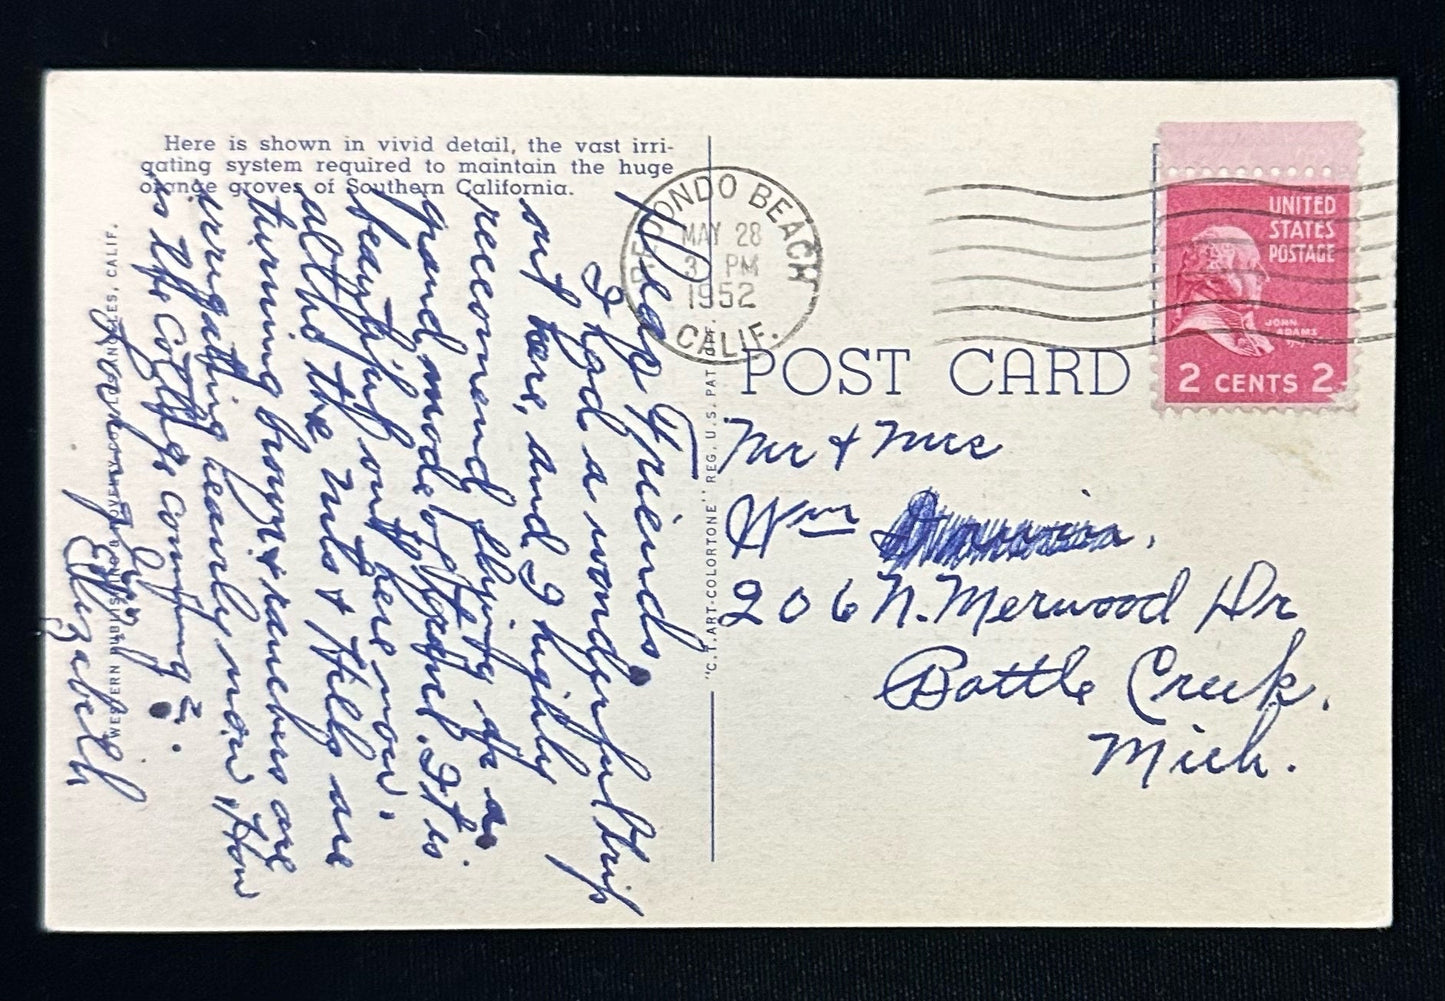 Here is shown in vivid detail, the vast irri-
gating system required to maintain the huge
orange groves of Southern California.
REDONDO BEACH
MAY 28
3 PM
1952
CALIF.
UNITED
STATES
POSTAGE
JOHN
ADAMS
2 CENTS 2
POST CARD
Mr & Mrs
Wm
206 N. Merwood Dr
Battle Creek,
Mich.
"C.T. ART-COLORTONE" REG. U.S. PAT. OFF.
Dear Friends
I had a wonderful trip
out here, and I highly
recommend flying as a
grand mode of travel. It is
beautiful out here now,
altho the Mts & Hills are
turning brown & ranchers are
irrigating nearly now. How
is the cottage coming?
Elizabeth
WESTERN PUBLISHING & NOVELTY CO., LOS ANGELES, CALIF.